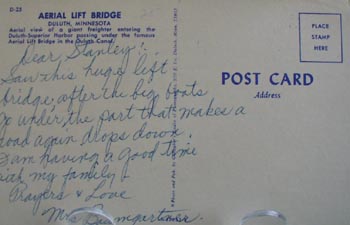 D-25
AERIAL LIFT BRIDGE
DULUTH, MINNESOTA
Aerial view of a giant freighter entering the
Duluth-Superior Harbor passing under the famous
Aerial Lift Bridge in the Duluth Canal.
PLACE
STAMP
HERE
POST CARD
Address
Dear Stanley:
Saw this huge lift
bridge, after the big boats
go under, the part that makes a
road again drops down.
I am having a good time
with my family.
Prayers & Love
Mrs Baumgartner.